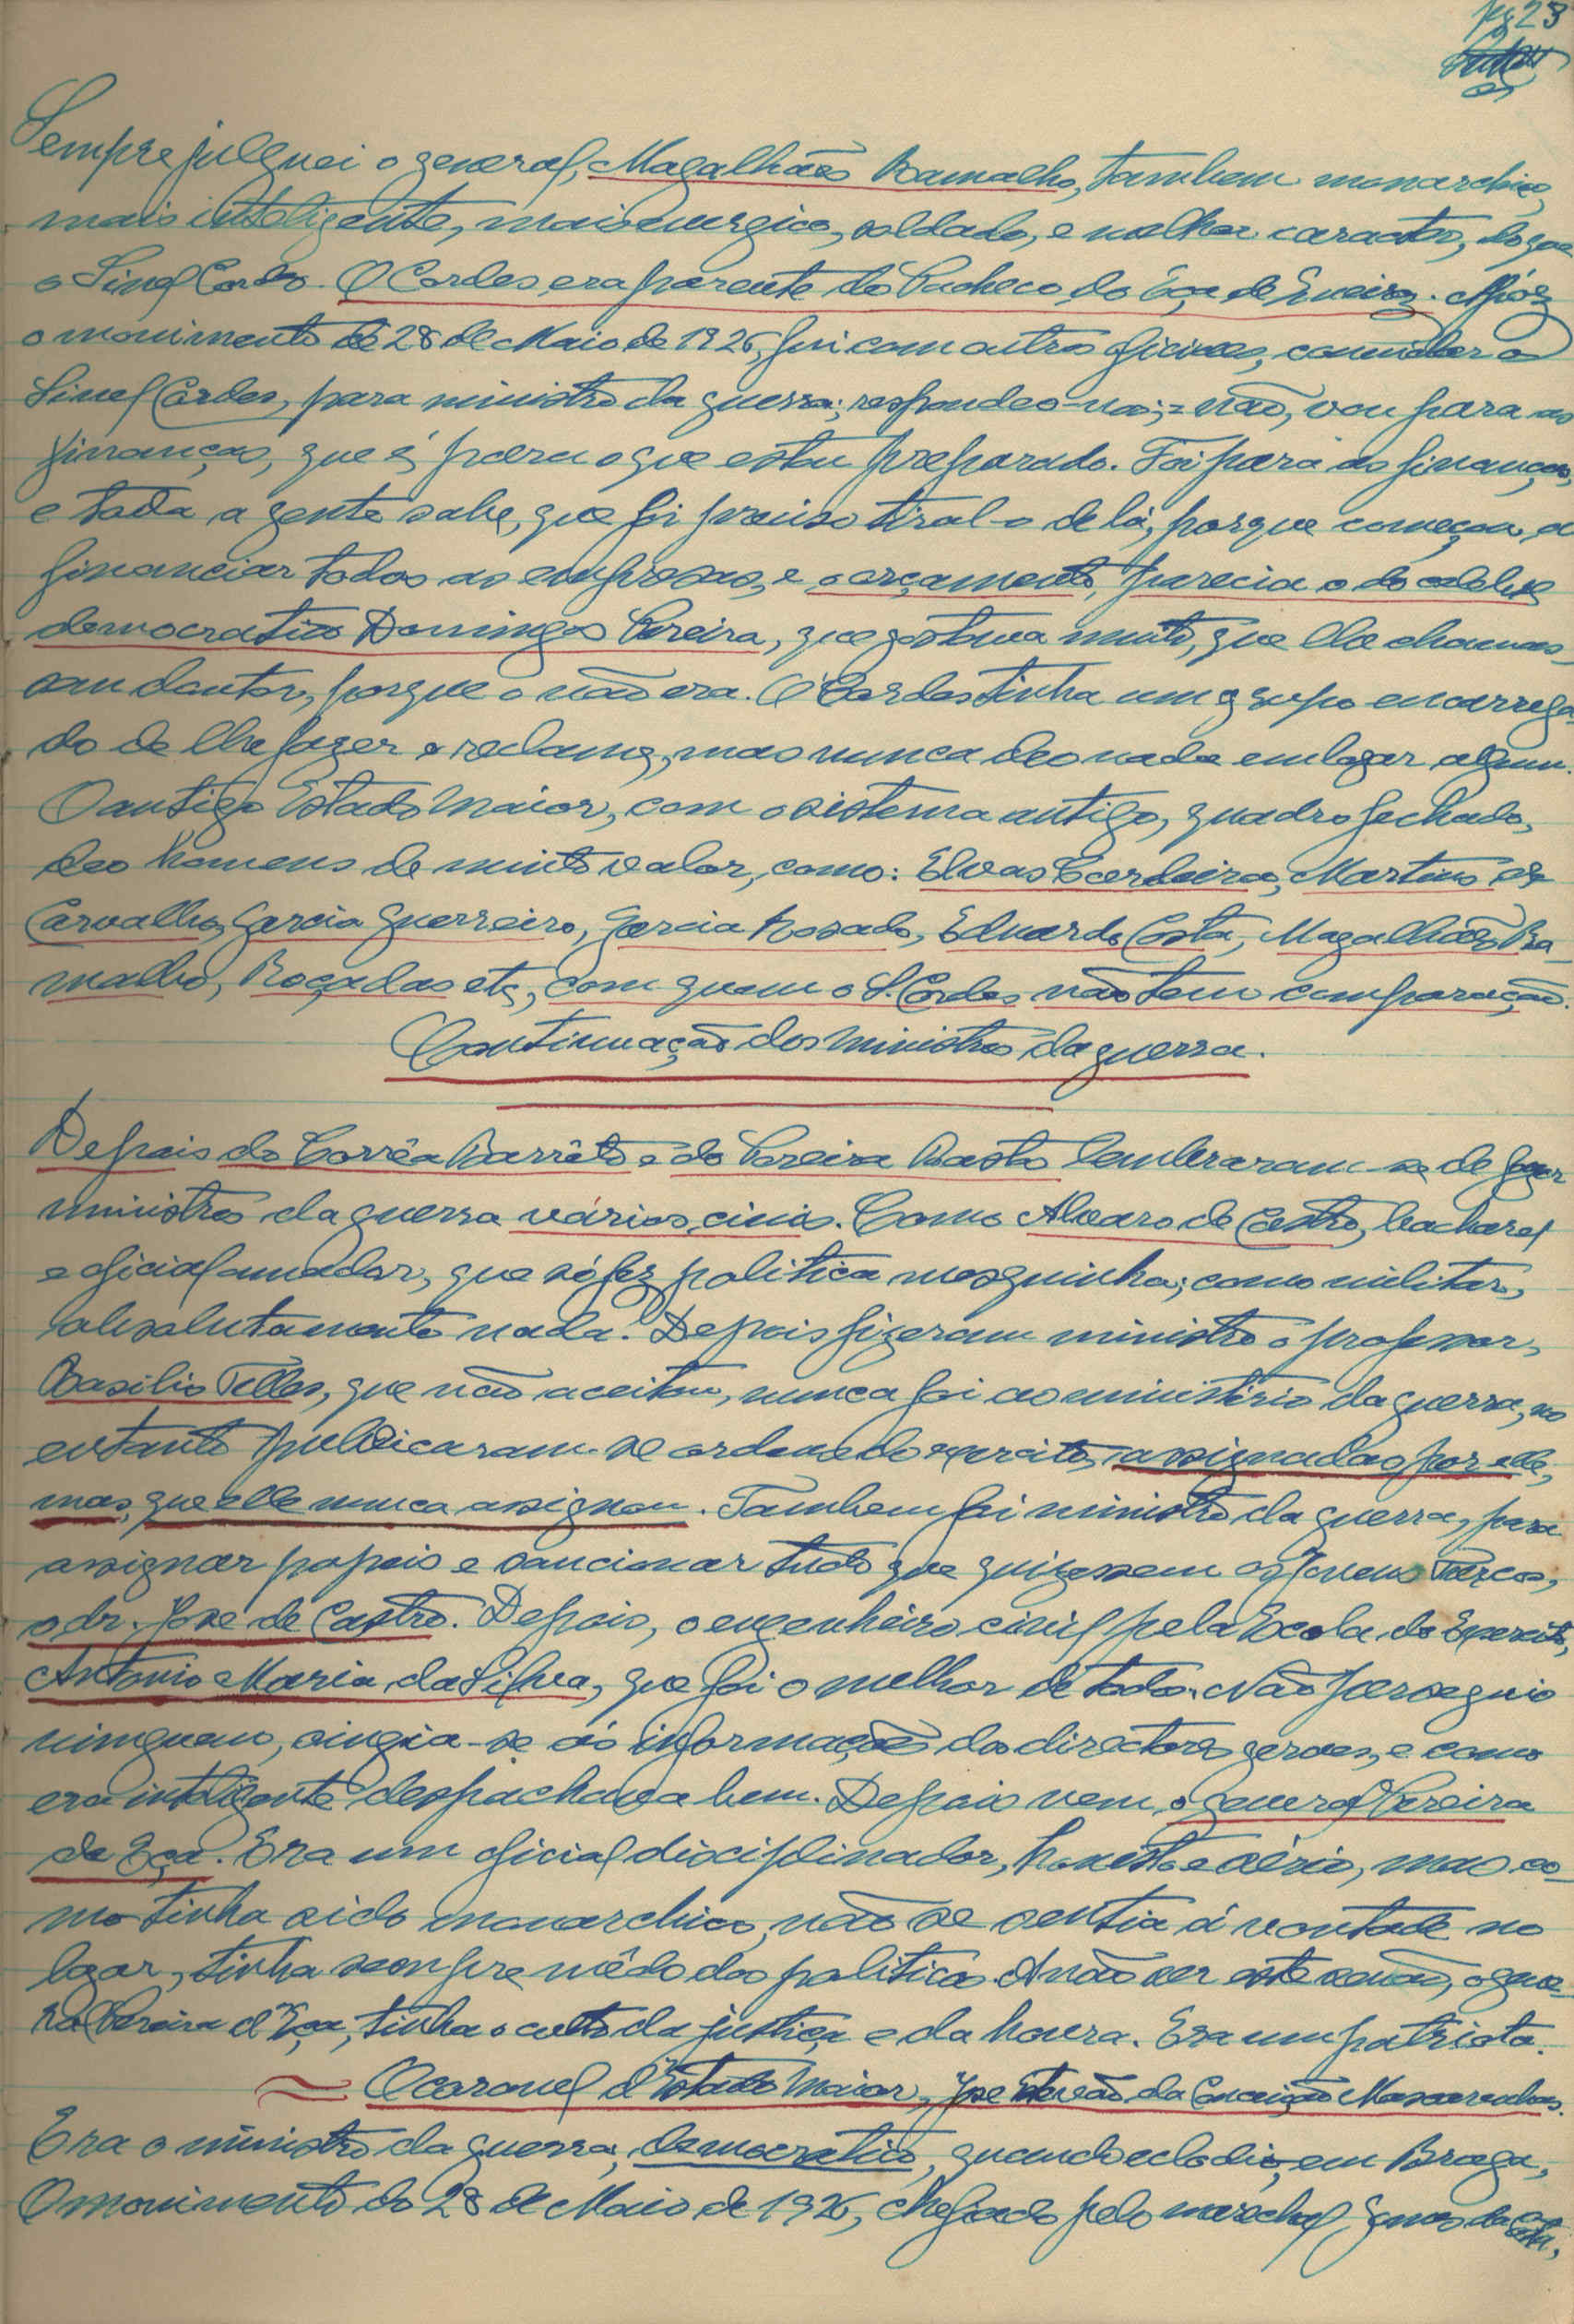 pg 23
Sempre julguei o general, Magalhães Ramalho, tambem monarchico,
mais inteligente, mais energico, soldado, e melhor caracter, do que
o Sinel Cordes. O Cordes era parente do Pacheco, do Eça de Queiroz. Apóz
o movimento de 28 de Maio de 1926, fui com outros oficiaes, convidar o
Sinel Cordes, para ministro da guerra; respondeo-nos; = não, vou para as
finanças, que é para o que estou preparado. Foi para as finanças,
e toda a gente sabe, que foi preciso tiral-o de lá, porque começou a
financiar todas as emprosas, e o orçamento, parecia o do celebre
democratico Domingos Pereira, que gostava muito, que lhe chamas-
sem doutor, porque o não era. O Cordes tinha um grupo encarrega-
do de lhe fazer o reclame, mas nunca deo nada em logar algum.
O antigo Estado Maior, com o sistema antigo, quadro fechado,
deo homens de muito valor, como: Elvas Cardeira, Martins de
Carvalho, Garcia Guerreiro, Garcia Rosado, Eduardo Costa, Magalhães Ra-
malho, Roçadas etc, com quem o S. Cordes não tem comparação.
Continuação dos ministros da guerra.
Depois do Corrêa Barrêto e do Pereira Basto lembraram-se de fazer
ministros da guerra vários civis. Como Alvaro de Castro, bacharel
e oficial amador, que só fez politica mesquinha; como militar,
absolutamente nada. Depois fizeram ministro o professor,
Basilio Telles, que não aceitou, nunca foi ao ministério da guerra, no
entanto publicaram-se ordens do exercito, assignadas por elle,
mas, que elle nunca assignou. Tambem foi ministro da guerra, para
assignar papeis e sancionar tudo que quizessem os Jovens Turcos,
o dr. José de Castro. Depois, o engenheiro civil pela Escola do Exercito,
Antonio Maria da Silva, que foi o melhor de todos. Não perseguio
ninguem, cingia-se ás informações dos directores geraes, e como
era inteligente despachava bem. Depois vem, o general Pereira
de Eça. Era um oficial disciplinador, honesto e sério, mas co-
mo tinha sido monarchico, não se sentia á vontade no
logar, tinha sempre mêdo dos politicos. A não ser este senão, o gene-
ral Pereira d'Eça, tinha o culto da justiça e da honra. Era um patriota.
O coronel d'Estado Maior, José Estevão da Conceição Mascarenhas.
Era o ministro da guerra, democratico, quando eclodio, em Braga,
O movimento do 28 de Maio de 1926, chefiado pelo marechal, Gomes da Costa,